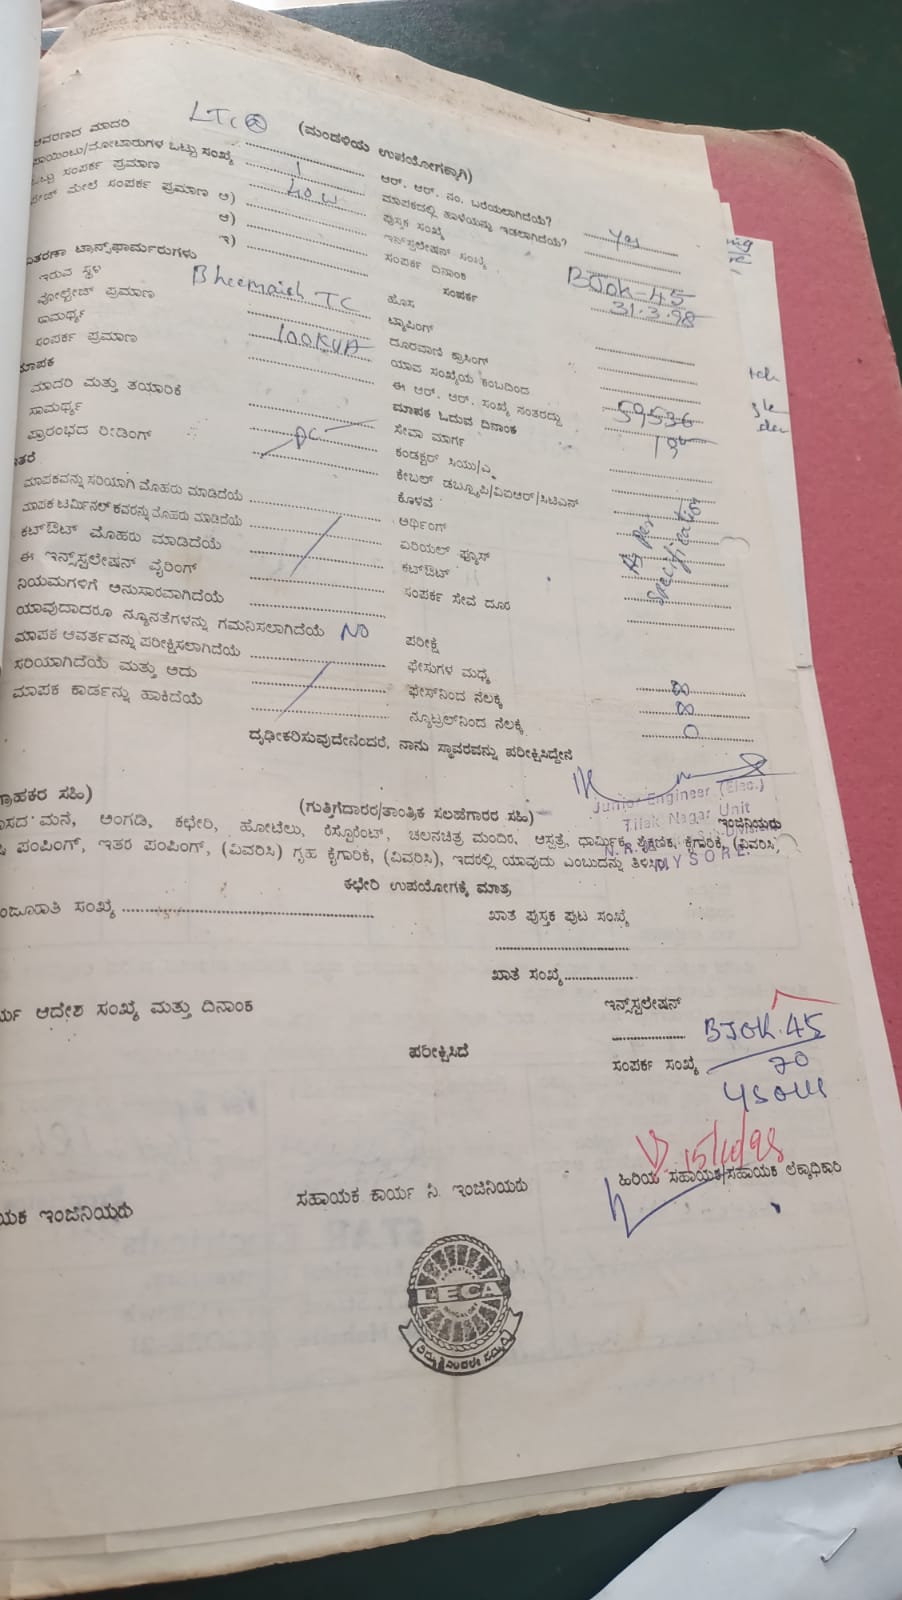 LTC
(ಮಂಡಳಿಯ ಉಪಯೋಗಕ್ಕಾಗಿ)
ಆವರಣದ ಮಾದರಿ
ಆರ್. ಆರ್. ನಂ. ಬರೆಯಲಾಗಿದೆಯೆ? Yes
ಪಾಯಿಂಟು/ಮೋಟಾರುಗಳ ಒಟ್ಟು ಸಂಖ್ಯೆ 1
ಮಾಪಕದಲ್ಲಿ ಹಾಳೆಯನ್ನು ಇಡಲಾಗಿದೆಯೆ?
ಒಟ್ಟು ಸಂಪರ್ಕ ಪ್ರಮಾಣ 40 W
ಪುಸ್ತಕ ಸಂಖ್ಯೆ
ಮೇಲೆ ಸಂಪರ್ಕ ಪ್ರಮಾಣ ಅ)
ಇನ್‌ಸ್ಟಲೇಷನ್ ಸಂಖ್ಯೆ BJOK-45
ಆ)
ಸಂಪರ್ಕ ದಿನಾಂಕ 31.3.98
ಇ)
ಸಂಪರ್ಕ
ವಿತರಣಾ ಟ್ರಾನ್ಸ್‌ಫಾರ್ಮರುಗಳು
ಹೊಸ
ಇರುವ ಸ್ಥಳ Bheemaiah TC
ಟ್ಯಾಪಿಂಗ್
ವೋಲ್ಟೇಜ್ ಪ್ರಮಾಣ
ದೂರವಾಣಿ ಕ್ರಾಸಿಂಗ್
ಸಾಮರ್ಥ್ಯ 100KVA
ಯಾವ ಸಂಖ್ಯೆಯ ಕಂಬದಿಂದ
ಸಂಪರ್ಕ ಪ್ರಮಾಣ
ಈ ಆರ್. ಆರ್. ಸಂಖ್ಯೆ ನಂತರದ್ದು 59536
ಮಾಪಕ
ಮಾಪಕ ಓದುವ ದಿನಾಂಕ
ಮಾದರಿ ಮತ್ತು ತಯಾರಿಕೆ
ಸೇವಾ ಮಾರ್ಗ
ಸಾಮರ್ಥ್ಯ
ಕಂಡಕ್ಟರ್ ಸಿಯು/ಎ
ಪ್ರಾರಂಭದ ರೀಡಿಂಗ್ DC
ಕೇಬಲ್ ಡಬ್ಲ್ಯೂಪಿ/ವಿಐಆರ್/ಸಿಟಿಎಸ್
ಇತರೆ
ಕೊಳವೆ
ಮಾಪಕವನ್ನು ಸರಿಯಾಗಿ ಮೊಹರು ಮಾಡಿದೆಯೆ
ಅರ್ಥಿಂಗ್
ಮಾಪಕ ಟರ್ಮಿನಲ್ ಕವರನ್ನು ಮೊಹರು ಮಾಡಿದೆಯೆ
ಏರಿಯಲ್ ಫ್ಯೂಸ್
As per specification
ಕಟ್‌ಔಟ್ ಮೊಹರು ಮಾಡಿದೆಯೆ
ಕಟ್‌ಔಟ್
ಈ ಇನ್ಸ್‌ಸ್ಟಲೇಷನ್ ವೈರಿಂಗ್
ಸಂಪರ್ಕ ಸೇವೆ ದೂರ
ನಿಯಮಗಳಿಗೆ ಅನುಸಾರವಾಗಿದೆಯೆ
ಯಾವುದಾದರೂ ನ್ಯೂನತೆಗಳನ್ನು ಗಮನಿಸಲಾಗಿದೆಯೆ NO
ಪರೀಕ್ಷೆ
ಮಾಪಕ ಆವರ್ತವನ್ನು ಪರೀಕ್ಷಿಸಲಾಗಿದೆಯೆ
ಫೇಸುಗಳ ಮಧ್ಯೆ
ಸರಿಯಾಗಿದೆಯೆ ಮತ್ತು ಅದು
ಫೇಸ್‌ನಿಂದ ನೆಲಕ್ಕೆ ∞
ಮಾಪಕ ಕಾರ್ಡನ್ನು ಹಾಕಿದೆಯೆ
ನ್ಯೂಟ್ರಲ್‌ನಿಂದ ನೆಲಕ್ಕೆ ∞
0
ದೃಢೀಕರಿಸುವುದೇನೆಂದರೆ, ನಾನು ಸ್ಥಾವರವನ್ನು ಪರೀಕ್ಷಿಸಿದ್ದೇನೆ
Junior Engineer (Elec.)
Tilak Nagar Unit
MYSORE.
ಗ್ರಾಹಕರ ಸಹಿ)
(ಗುತ್ತಿಗೆದಾರರ/ತಾಂತ್ರಿಕ ಸಲಹೆಗಾರರ ಸಹಿ)
ಇಂಜಿನಿಯರು
ವಾಸದ ಮನೆ, ಅಂಗಡಿ, ಕಛೇರಿ, ಹೋಟೆಲು, ರೆಸ್ಟೊರೆಂಟ್, ಚಲನಚಿತ್ರ ಮಂದಿರ, ಆಸ್ಪತ್ರೆ, ಧಾರ್ಮಿಕ, ಶೈಕ್ಷಣಿಕ, ಕೈಗಾರಿಕೆ, (ವಿವರಿಸಿ,
ಪಂಪಿಂಗ್, ಇತರ ಪಂಪಿಂಗ್, (ವಿವರಿಸಿ) ಗೃಹ ಕೈಗಾರಿಕೆ, (ವಿವರಿಸಿ), ಇದರಲ್ಲಿ ಯಾವುದು ಎಂಬುದನ್ನು ತಿಳಿಸಿ)
ಕಛೇರಿ ಉಪಯೋಗಕ್ಕೆ ಮಾತ್ರ
ಮಂಜೂರಾತಿ ಸಂಖ್ಯೆ
ಖಾತೆ ಪುಸ್ತಕ ಪುಟ ಸಂಖ್ಯೆ
ಖಾತೆ ಸಂಖ್ಯೆ
ಕಾರ್ಯ ಆದೇಶ ಸಂಖ್ಯೆ ಮತ್ತು ದಿನಾಂಕ
ಇನ್ಸ್‌ಸ್ಟಲೇಷನ್
BJOK.45
ಪರೀಕ್ಷಿಸಿದೆ
ಸಂಪರ್ಕ ಸಂಖ್ಯೆ
70
ಸಹಾಯಕ ಇಂಜಿನಿಯರು
ಸಹಾಯಕ ಕಾರ್ಯ ನಿ. ಇಂಜಿನಿಯರು
ಹಿರಿಯ ಸಹಾಯಕ/ಸಹಾಯಕ ಲೆಕ್ಕಾಧಿಕಾರಿ
LECA